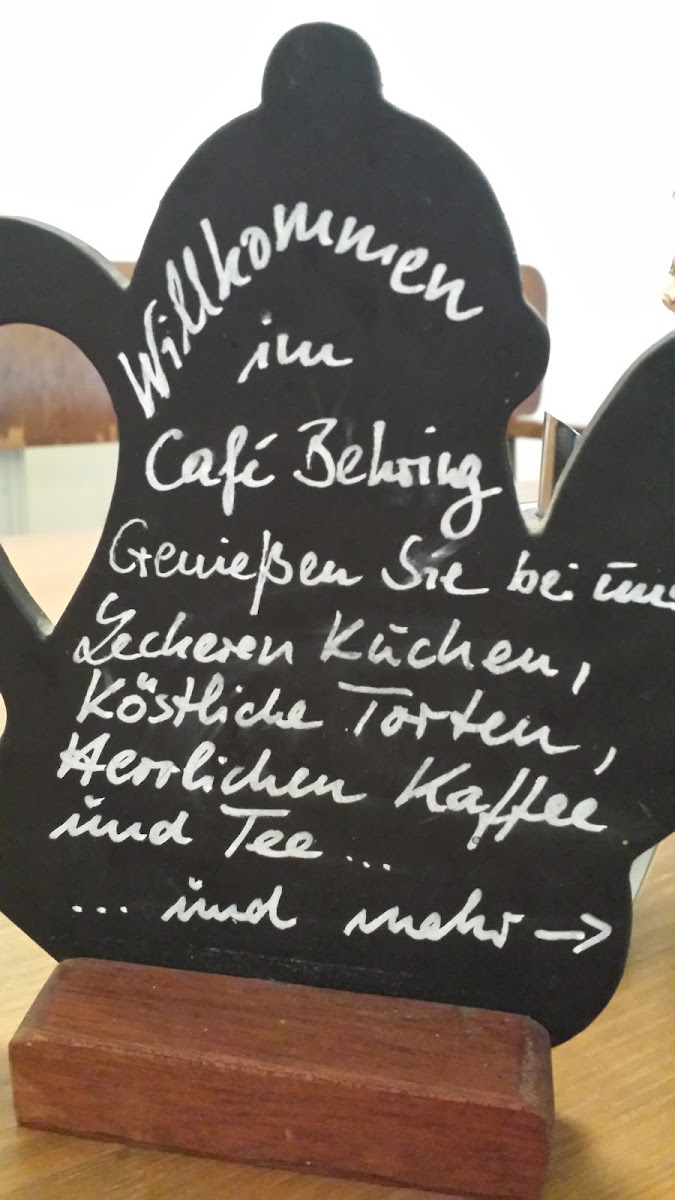 Willkommen
im
Café Behring
Genießen Sie bei uns
Leckeren Kuchen,
Köstliche Torten,
Herrlichen Kaffee
und Tee...
... und mehr →